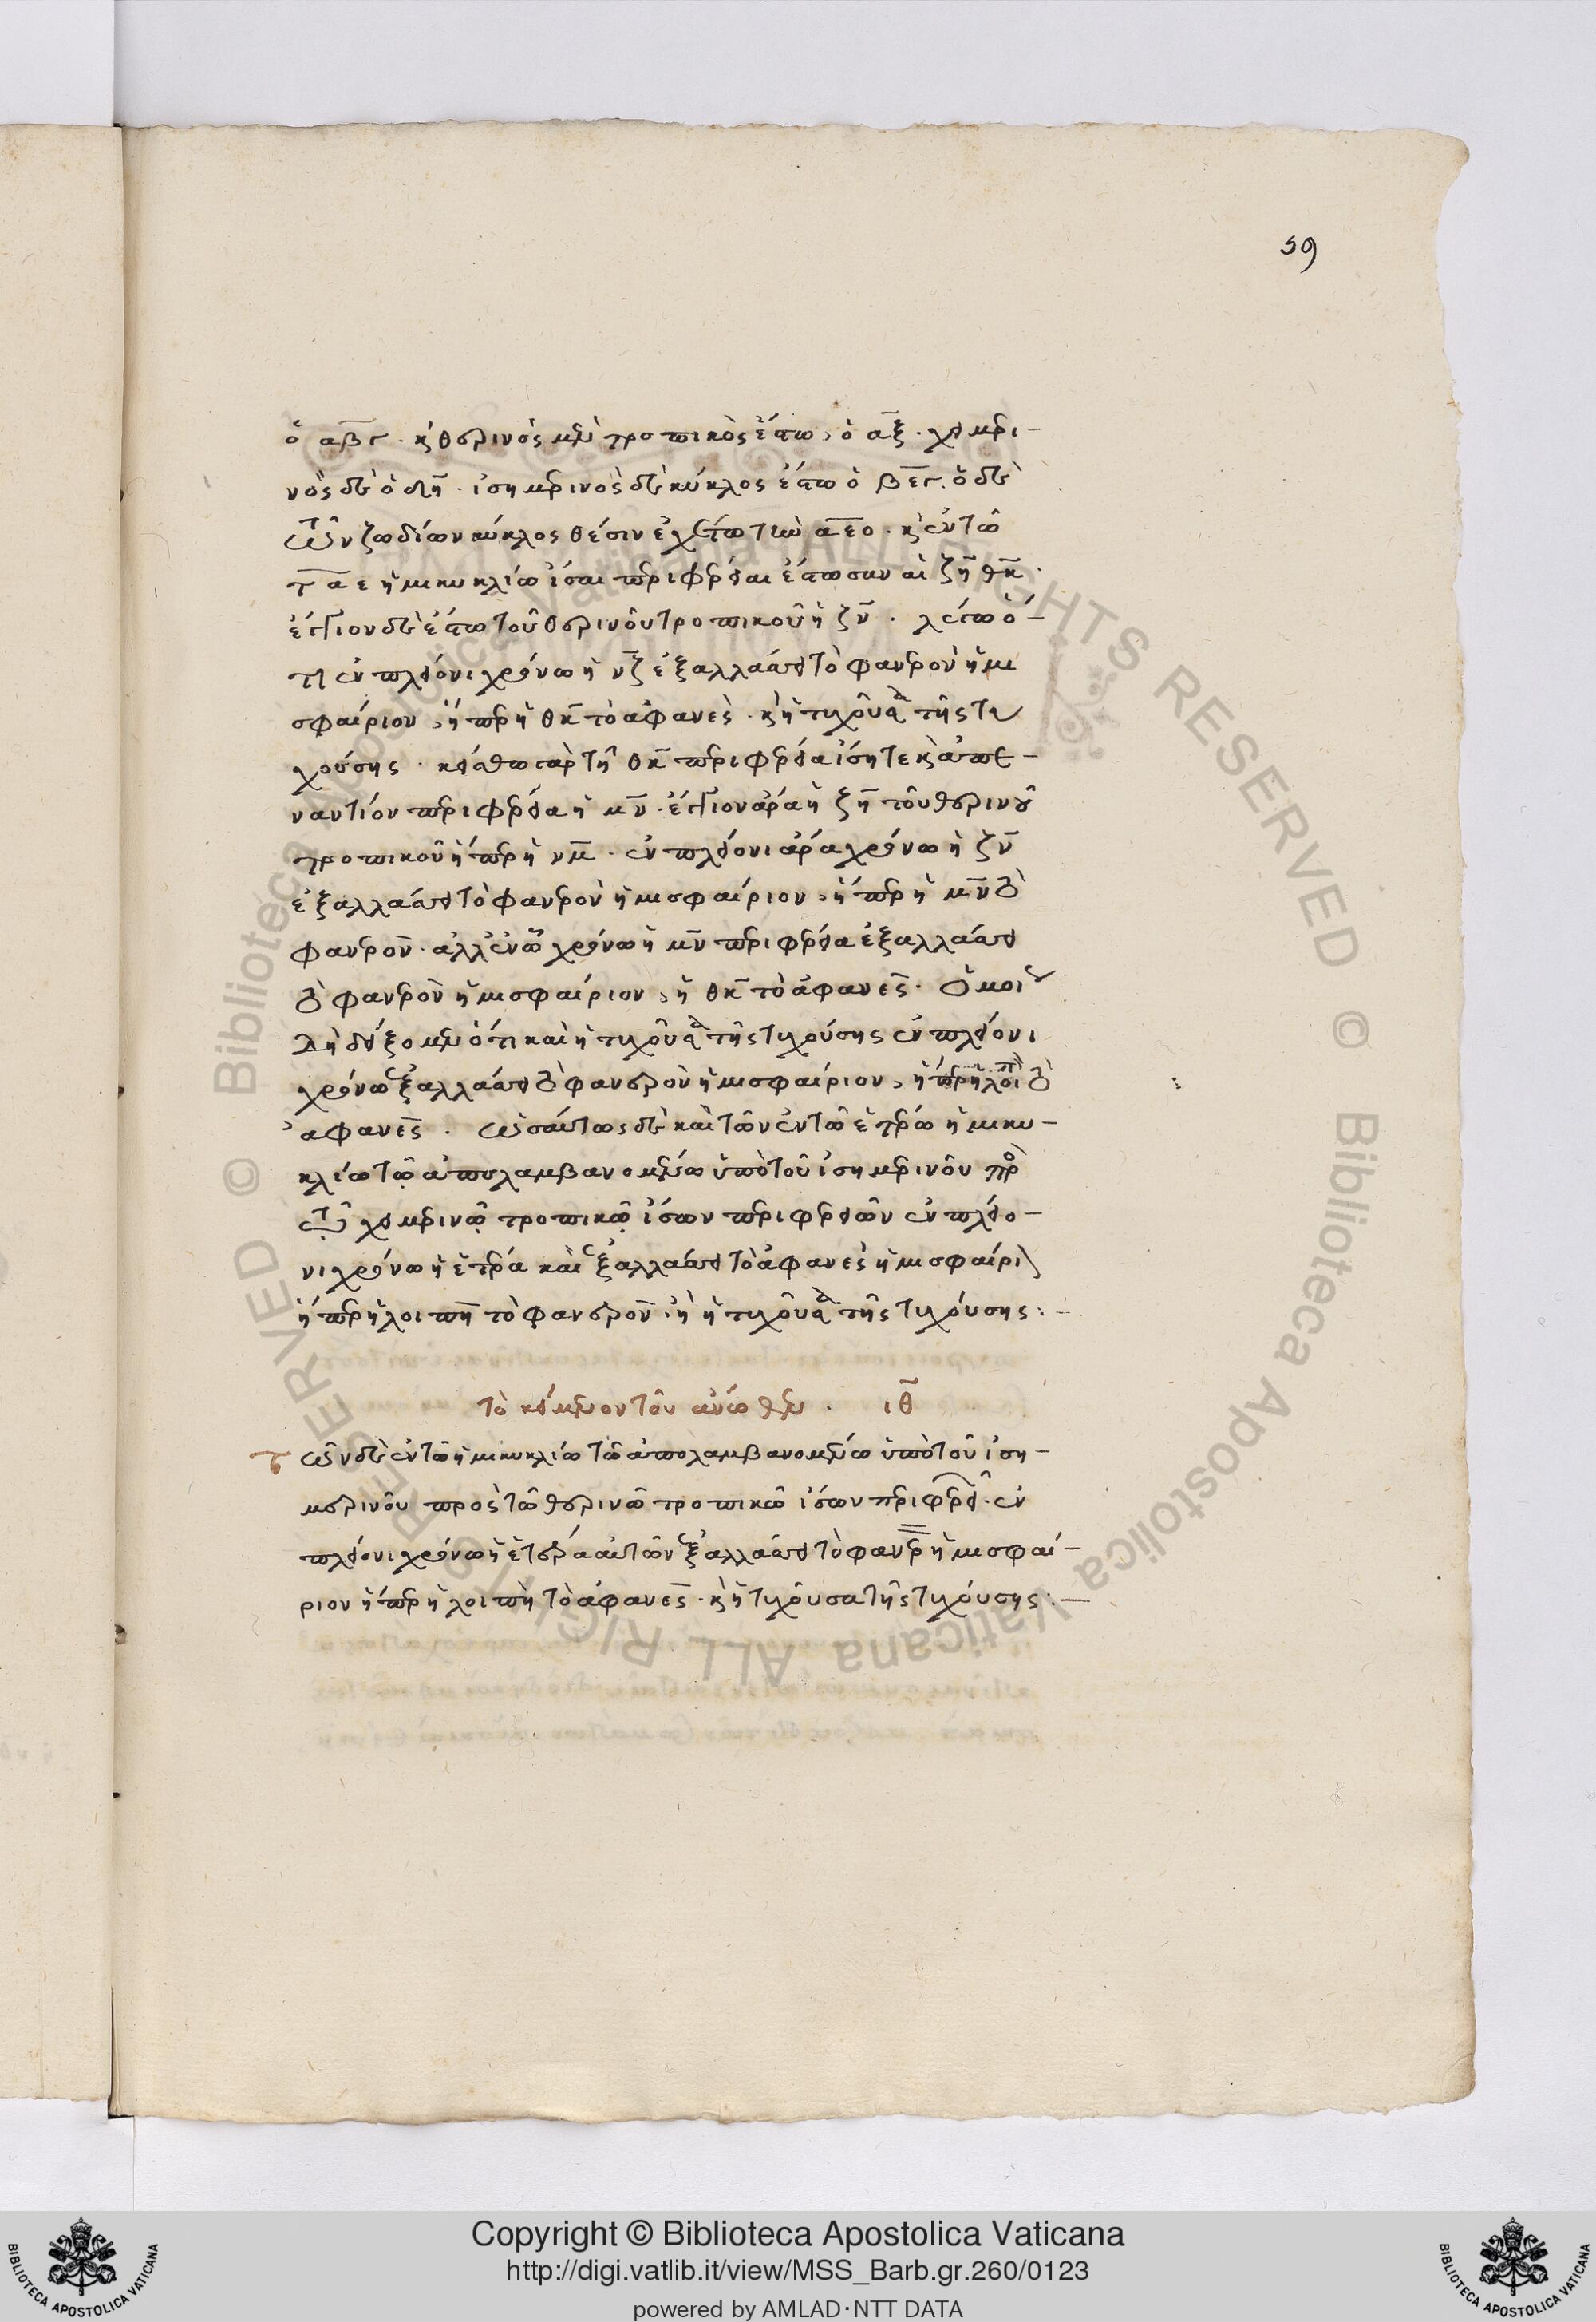 59
ὁ αβγ. κ θερινὸς μὲν τροπικὸς ἔστω, ὁ αξ. χειμερι-
νὸς δὲ ὁ δη. ἰσημερινὸς δὲ κύκλος ἔστω ὁ βεγ. ὁ δὲ
τῶν ζωδίων κύκλος θέσιν ἐχέτω τὴν αεο. κ ἐν τῶ
γαε ἡμικυκλίω ἴσαι περιφέρειαι ἔστωσαν αἱ ζη θκ.
ἔγγιον δὲ ἔστω τοῦ θερινοῦ τροπικοῦ ἡ ζν. λέγω ὅ-
τι ἐν πλείονι χρόνω ἡ νζ ἐξαλλάσσει τὸ φανερὸν ἡμι
σφαίριον, ἤπερ ἡ θκ τὸ ἀφανὲς. κ ἡ τυχοῦσα τῆς τυ
χούσης. κείσθω γὰρ τῆ θκ περιφερεία ἴση τε κ ἀπε-
ναντίον περιφέρεια ἡ μν. ἔγγιον ἄρα ἡ ξη τοῦ θερινοῦ
τροπικοῦ ἤπερ ἡ νμ. ἐν πλείονι ἄρα χρόνω ἡ ζν
ἐξαλλάσσει τὸ φανερὸν ἡμισφαίριον, ἤπερ ἡ μν τὸ
φανερὸν. ἀλλ ἐν ὧ χρόνω ἡ μν περιφέρεια ἐξαλλάσσει
τὸ φανερὸν ἡμισφαίριον, ἡ θκ τὸ ἀφανὲς. ὁμοί
δὴ δείξομεν ὅτι καὶ ἡ τυχοῦσα τῆς τυχούσης ἐν πλείονι
χρόνω ἐξαλλάσσει τὸ φανερὸν ἡμισφαίριον, ἤπερ ἡ λοιπὴ τὸ
ἀφανὲς. ὡσαύτως δὲ καὶ τῶν ἐν τῶ ἑτέρω ἡμικυ-
κλίω τῶ ἀπολαμβανομένω ὑπὸ τοῦ ἰσημερινοῦ πρὸ
τῶ χειμερινῶ τροπικῶ ἴσων περιφερειῶν ἐν πλείο-
νι χρόνω ἡ ἑτέρα καὶ ἐξαλλάσσει τὸ ἀφανὲς ἡμισφαίρι
ἤπερ ἡ λοιπὴ τὸ φανερὸν. ἢ ἡ τυχοῦσα τῆς τυχούσης:-
τὸ κείμενον τὸν ἄνωθεν. ιθ
Τῶν δὲ ἐν τῶ ἡμικυκλίω τῶ ἀπολαμβανομένω ὑπὸ τοῦ ἰση-
μερινοῦ πρὸς τῶ θερινῶ τροπικῶ ἴσων περιφερει. ἐν
πλείονι χρόνω ἡ ἑτέρα αὐτῶν ἐξαλλάσσει τὸ φανερ ἡμισφαί-
ριον ἤπερ ἡ λοιπὴ τὸ ἀφανὲς. κ ἡ τυχοῦσα τῆς τυχούσης:-
Copyright © Biblioteca Apostolica Vaticana
http://digi.vatlib.it/view/MSS_Barb.gr.260/0123
powered by AMLAD·NTT DATA